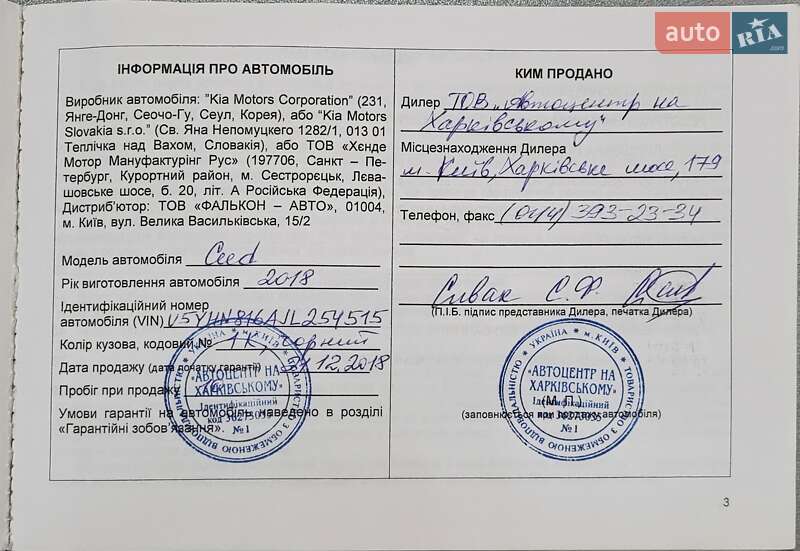 auto RIA
ІНФОРМАЦІЯ ПРО АВТОМОБІЛЬ
Виробник автомобіля: "Kia Motors Corporation" (231,
Янге-Донг, Сеочо-Гу, Сеул, Корея), або "Kia Motors
Slovakia s.r.o." (Св. Яна Непомуцкего 1282/1, 013 01
Теплічка над Вахом, Словакія), або ТОВ «Хєнде
Мотор Мануфактурінг Рус» (197706, Санкт – Пе-
тербург, Курортний район, м. Сестрорєцьк, Лєва-
шовське шосе, б. 20, літ. А Російська Федерація),
Дистриб'ютор: ТОВ «ФАЛЬКОН – АВТО», 01004,
м. Київ, вул. Велика Васильківська, 15/2
Модель автомобіля Ceed
Рік виготовлення автомобіля 2018
Ідентифікаційний номер
автомобіля (VIN) U5YHN816AJL254515
Колір кузова, кодовий № 1K, чорний
Дата продажу (дата початку гарантії) 21.12.2018
Пробіг при продажу
Умови гарантії на автомобіль наведено в розділі
«Гарантійні зобов'язання».
УКРАЇНА * м. КИЇВ * ТОВАРИСТВО З ОБМЕЖЕНОЮ ВІДПОВІДАЛЬНІСТЮ
"АВТОЦЕНТР НА
ХАРКІВСЬКОМУ"
Ідентифікаційний
код
№1
КИМ ПРОДАНО
Дилер ТОВ "Автоцентр на
Харківському"
Місцезнаходження Дилера
м. Київ, Харківське шосе, 179
Телефон, факс (044) 393-23-34
Сивак С.Ф.
(П.І.Б. підпис представника Дилера, печатка Дилера)
УКРАЇНА * м. КИЇВ * ТОВАРИСТВО З ОБМЕЖЕНОЮ ВІДПОВІДАЛЬНІСТЮ
"АВТОЦЕНТР НА
ХАРКІВСЬКОМУ"
(М.П.)
Ідентифікаційний
(заповнюється при продажу автомобіля)
код
№1
3